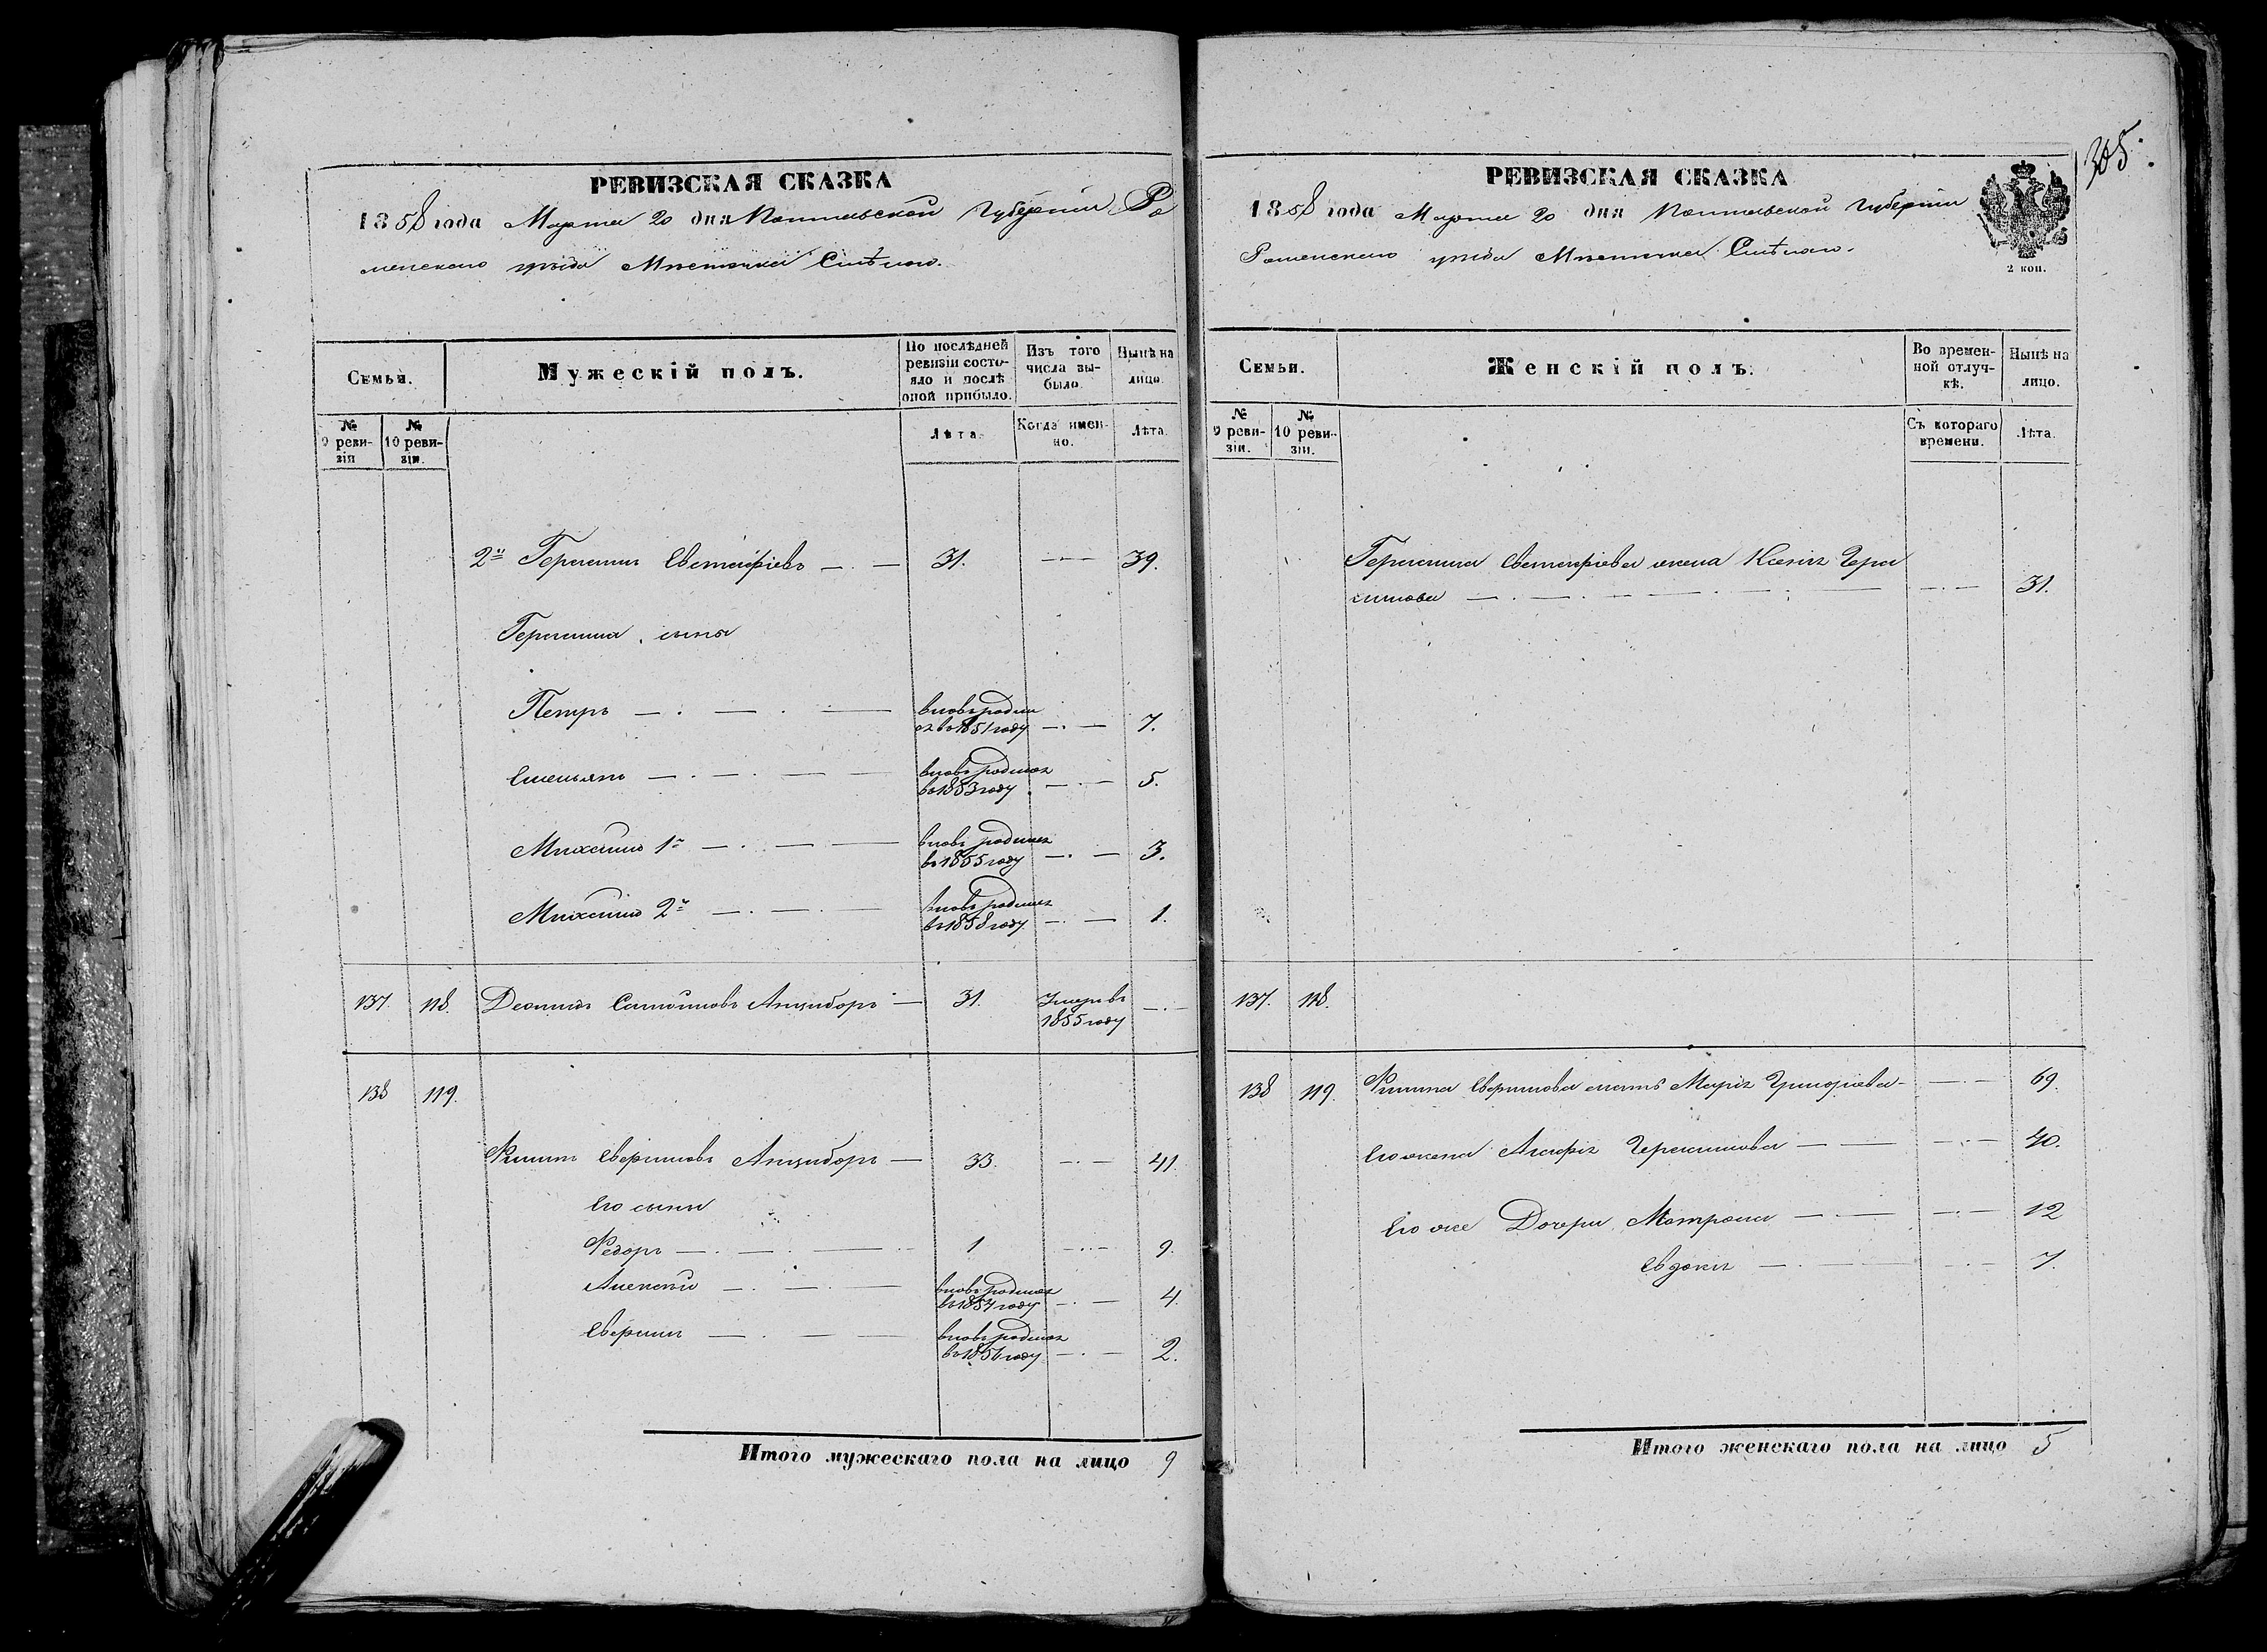 РЕВИЗСКАЯ СКАЗКА
1858 года Марта 20 дня Полтавской Губернии Ро
менского уѣзда Мѣстечка Смѣлого.
Семьи.
Мужескій полъ.
По послѣдней
ревизіи состо-
яло и послѣ
оной прибыло.
Изъ того
числа вы-
было.
Нынѣ на
лицо.
№
9 реви-
зіи
№
10 реви-
зіи.
Лѣта.
Когда имен-
но.
Лѣта.
2й Герасимъ Евстафіевъ — 31. — 39.
Герасима сыны
Петръ — вновь родил
ся въ 1851 году — 7.
Емельянъ — вновь родился
въ 1853 году — 5.
Михаилъ 1й — вновь родился
въ 1855 году — 3.
Михаилъ 2й — вновь родился
въ 1858 году — 1.
137. 118. Самойловъ Анцыборъ — 31. Умеръ въ
1855 году —
138 119.
Филипъ Аверкиевъ Анцыборъ — 33. — 41.
Его сыны
Федоръ — 1 — 9.
Алексѣй — вновь родился
въ 1854 году — 4.
вновь родился
въ 1856 году — 2.
Итого мужескаго пола на лицо 9
305
РЕВИЗСКАЯ СКАЗКА
1858 года Марта 20 дня Полтавской Губерніи
Роменского уѣзда Мѣстечка Смѣлого.
2 коп.
Семьи.
Женскій полъ.
Во времен-
ной отлуч-
кѣ.
Нынѣ на
лицо.
№
9 реви-
зіи.
№
10 реви-
зіи.
Съ котораго
времени.
Лѣта.
Герасима Евстафіева жена Ксенія Гера
симова — 31.
137. 118.
138 119. Филипа мать Марія Григоріева — 69.
Его жена Агафія Герасимова — 40.
Его же Дочери Матрона — 12
Евдокія — 7.
Итого женскаго пола на лицо 5